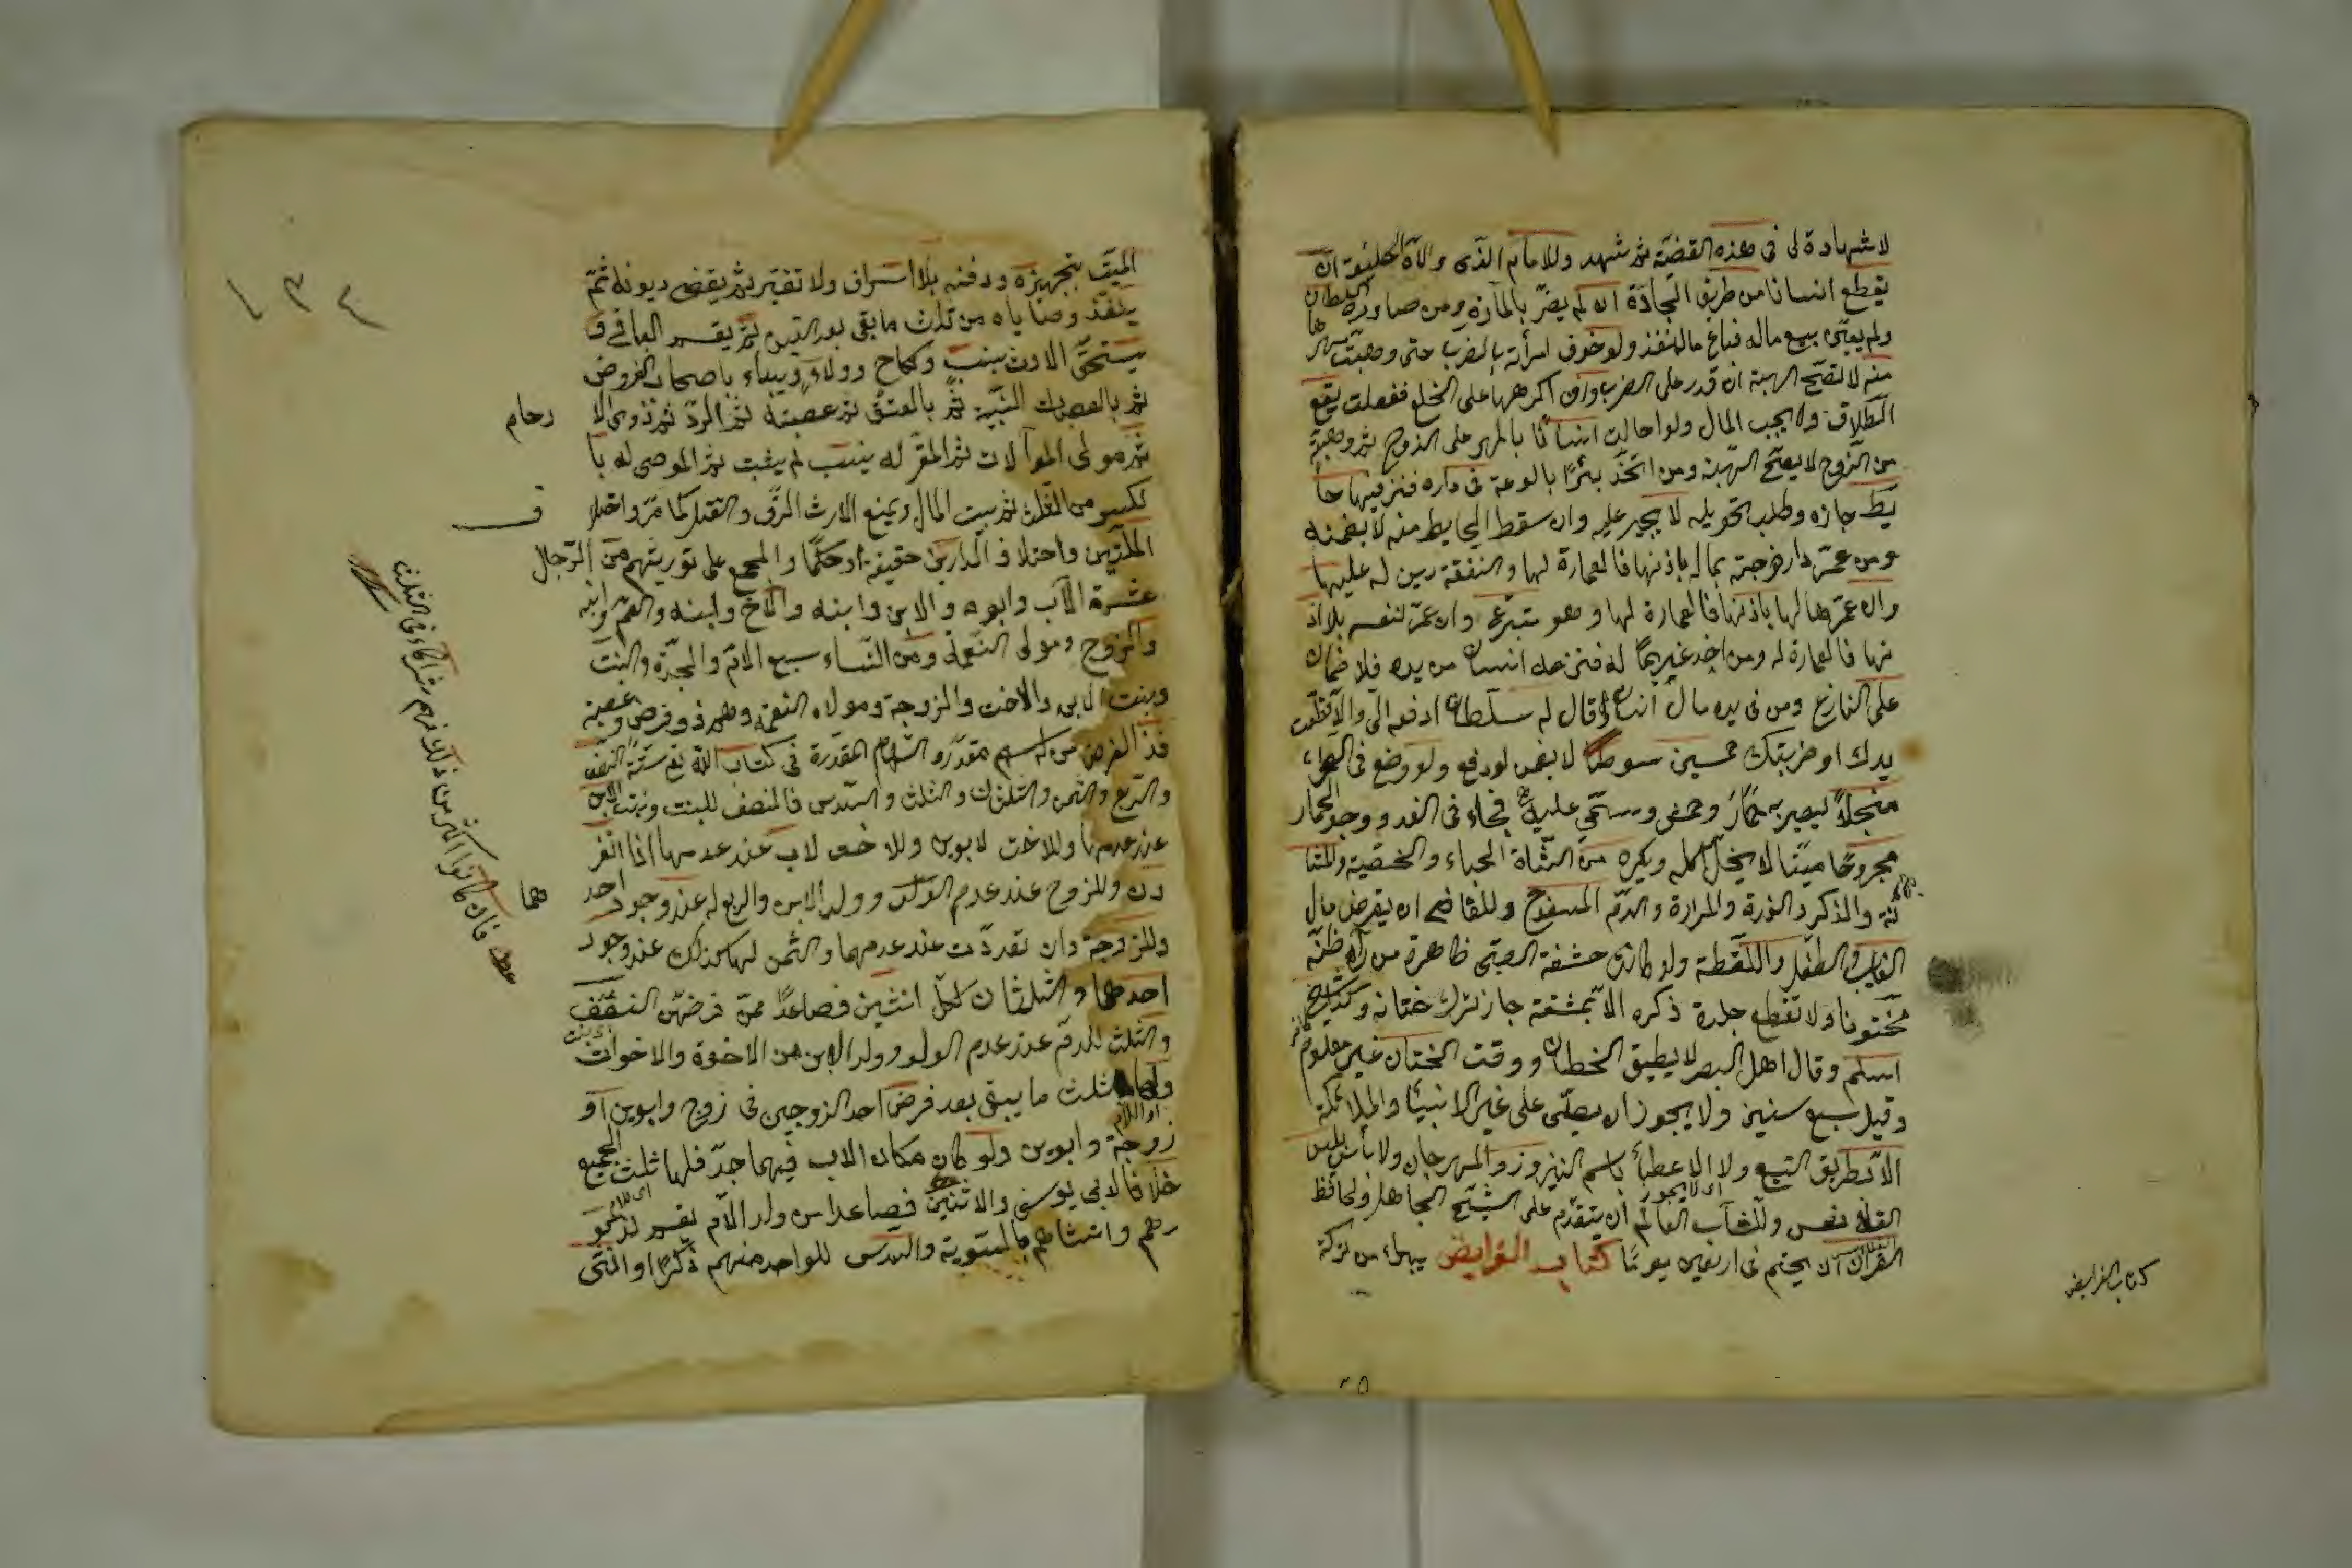 لا شهادة لى فى هذه القضية ثم شهد وللامام الذى ولاه الخليفة ان
يقطع انسانا من طريق الجادة ان لم يضر بالمارة ومن صادره السلطان
ولم يعين بيع ماله فباع ماله نفذ ولو خوف امرأته بالضرب حتى وهبت مهرها
منه لا تصح الهبة ان قدر على الضرب وان اكرهها على الخلع ففعلت يقع
الطلاق ولا يجب المال ولو احالت انسانا بالمهر على الزوج ثم وهبته
من الزوج لا يصح الهبة ومن اتخذ بئرا بالوعة فى داره فنز فيها حا
يط جاره وطلب تحويله لا يجبر عليه وان سقط الحايط منه لا يضمنه
ومن عمر دار زوجته بماله باذنها فالعمارة لها والنفقة دين له عليها
وان عمرها لها باذنها فالعمارة لها وهو متبرع وان عمر لنفسه بلا اذ
نها فالعمارة له ومن اخذ غريما له فنزعه انسان من يده فلا ضمان
على النازع ومن فى يده مال انسان وقال له سلطان ادفع الى والا قطعت
يدك او ضربتك خمسين سوطا لا يضمن لو دفع ولو وضع فى الصحراء
منجلا ليصيد به حمار وحش وسمى عليه فجاء فى الغد ووجد الحمار
مجروحا ميتا لا يحل اكله ويكره من الشاة الحياء والخصية والمثا
نة والذكر والغدة والمرارة والدم المسفوح وللقاضى ان يقرض مال
الغايب والطفل واللقطة ولو كانت حشفة الصبى ظاهرة من رآه ظنه
مختونا ولا تقطع جلدة ذكره الا بمشقة جاز ترك ختانه وكذا شيخ
اسلم وقال اهل البصر لا يطيق الختان ووقت الختان غير معلوم
وقيل سبع سنين ولا يجوز ان يصلى على غير الانبياء والملائكة
الا بطريق التبع ولا الاعطاء باسم النيروز والمهرجان ولا باس بلبس
القلانس وللشاب العالم ان يتقدم على الشيخ الجاهل ولحافظ
القرآن ان يختم فى اربعين يوما كتاب الفرايض يبداء من تركة
كتاب الفرايض
١٣٤
الميت بتجهيزه ودفنه بلا اسراف ولا تقتير ثم يقضى ديونه ثم
ينفذ وصاياه من ثلث ما بقى بعد الدين ثم يقسم الباقى و
يستحق الارث بنسب ونكاح وولاء ويبداء باصحاب الفروض
ثم بالعصبات النسبية ثم بالمعتق ثم عصبته ثم الرد ثم ذوى الا
رحام
ثم مولى الموالات ثم المقر له بنسب لم يثبت ثم الموصى له با
كثر من الثلث ثم بيت المال ويمنع الارث الرق والقتل كما مر واختلا
ف
الملتين واختلاف الدارين حقيقة او حكما والمجمع على توريثهم من الرجال
عشرة الاب وابوه والابن وابنه والاخ وابنه والعم وابنه
والزوج ومولى النعمة ومن النساء سبع الام والجدة والبنت
وبنت الابن والاخت والزوجة ومولاه النعمة وهم ذو فرض وعصبة
فذ الفرض من له سهم مقدر والسهام المقدرة فى كتاب الله تع ستة النصف
والربع والثمن والثلثان والثلث والسدس فالنصف للبنت وبنت الابن
عند عدمها وللاخت لابوين وللاخت لاب عند عدمها اذا انفر
دن وللزوج عند عدم الولد وولد الابن والربع له عند وجود احد
هما
وللزوجة وان تعددت عند عدمهما والثمن لها كذلك عند وجود
احدهما والثلثان لكل اثنين فصاعدا ممن فرضهن النصف
والثلث للام عند عدم الولد وولد الابن والاثنين من الاخوة والاخوات
ولها ثلث ما يبقى بعد فرض احد الزوجين فى زوج وابوين او
زوجة وابوين ولو كان مكان الاب فيهما جد فلها ثلث الجميع
خلافا لابى يوسف والاثنين فصاعدا من ولد الام يقسم لذكو
رهم وانثاهم بالسوية والسدس للواحد منهم ذكرا او انثى
فان كانوا اكثر من ذلك فهم شركاء فى الثلث